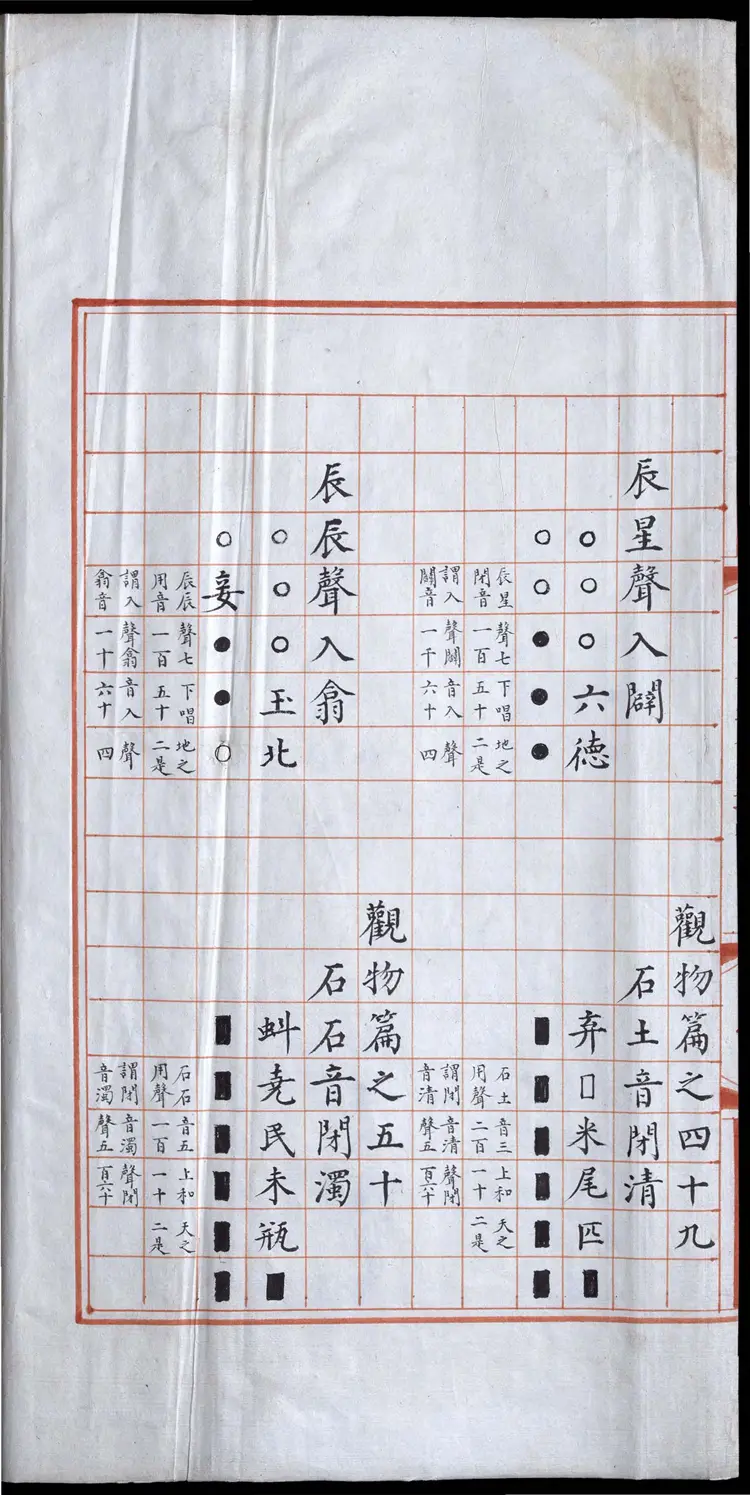 觀物篇之四十九
辰星聲入闢
石土音閉清
○○○六德
弃口米尾匹■
○○●●●
■■■■■■
辰星聲七下唱地之
閉音一百五十二是
謂入聲闢音入聲
闢音一千六十四
石土音三上和天之
用聲二百一十二是
謂閉音清聲閉
音清聲五百六十
觀物篇之五十
辰辰聲入翕
石石音閉濁
○○○玉北
蚪尭民未瓶■
○妾●●○
■■■■■■
辰辰聲七下唱地之
用音一百五十二是
謂入聲翕音入聲
翕音一十六十四
石石音五上和天之
用聲一百一十二是
謂閉音濁聲閉
音濁聲五百六十